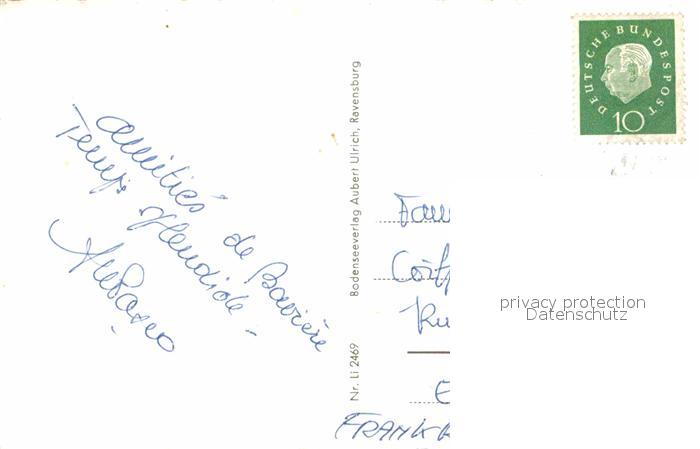 Amitiés de Bavière
Temps splendide -
Bodenseeverlag Aubert Ulrich, Ravensburg
Nr. Li 2469
DEUTSCHE BUNDESPOST
10
Fam
Coiff
Ru
E
FRANK
privacy protection
Datenschutz